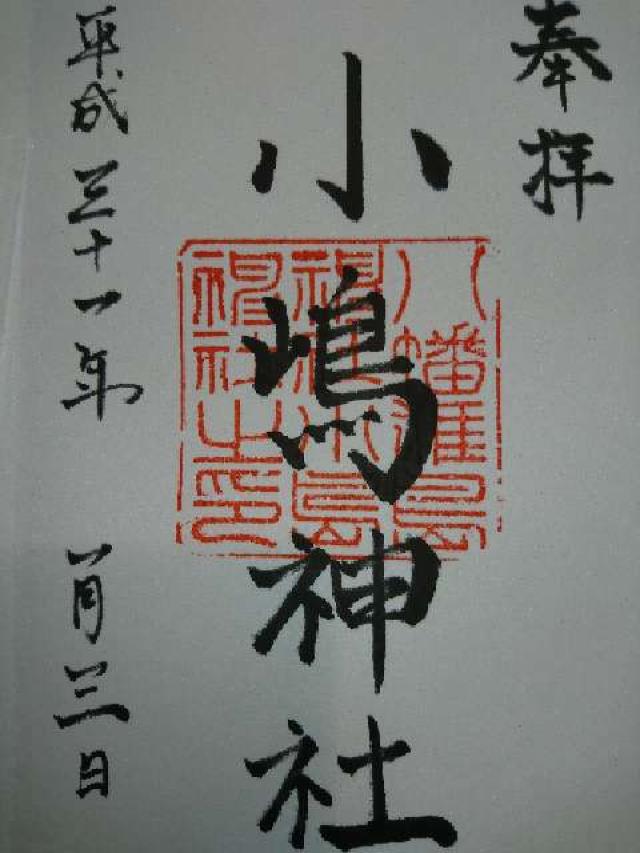 奉拝
八幡雄島
神社小島
神社之印
小嶋神社
平成三十一年 一月三日